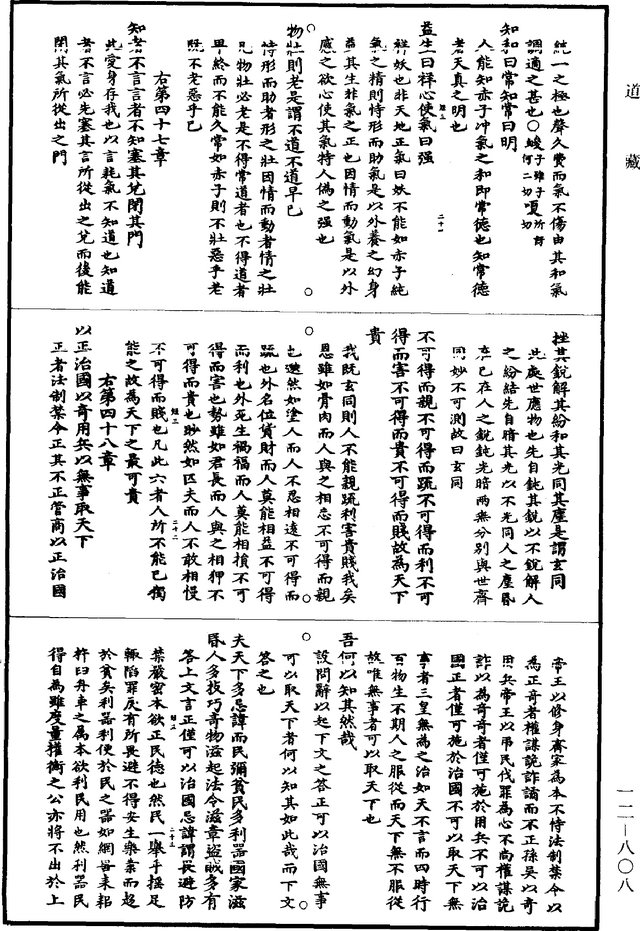 道藏
純一之極也聲久費而氣不傷由其和氣
調適之甚也○峻子雖子何二切嗄所訝切
知和曰常知常曰明
人能知赤子沖氣之和即常德也知常德
者天真之明也
益生曰祥心使氣曰强
祥妖也非天地正氣曰妖不能如赤子純
氣之精則恃形而助氣是以外養之幻身
益其生非氣之正也因情而動氣是以外
感之欲心使其氣特人偽之强也
物壯則老是謂不道不道早已
恃形而助者形之壯因情而動者情之壯
凡物壯必老是不得常道者也不得道者
早終而不能久常如赤子則不壯惡乎老
既不老惡乎已
右第四十七章
知者不言言者不知塞其兌閉其門
此愛身存我也以言耗氣不知道也知道
者不言必先塞其言所從出之兌而後能
閉其氣所從出之門
挫其銳解其紛和其光同其塵是謂玄同
此處世應物也先自鈍其銳以不銳解人
之紛結先自暗其光以不光同人之塵昏
在己在人之銳鈍光暗兩無分別與世齊
同妙不可測故曰玄同
不可得而親不可得而踈不可得而利不可
得而害不可得而貴不可得而賤故為天下
貴
我既玄同則人不能親踈利害貴賤我矣
恩雖如骨肉而人與之相忘不可得而親
也邈然如塗人而人不忍相遠不可得而
踈也外名位貨財而人莫能相益不可得
而利也外死生禍福而人莫能相損不可
得而害也勢雖如君長而人與之相狎不
可得而貴也眇然如匹夫而人不敢相慢
不可得而賤也凡此六者人所不能己獨
能之故為天下之最可貴
右第四十八章
以正治國以奇用兵以無事取天下
正者法制禁令正其不正管商以正治國
帝王以修身齊家為本不恃法制禁令以
為正奇者權謀詭詐譎而不正孫吳以奇
用兵帝王以弔民伐罪為心不尚權謀詭
詐以為奇奇者僅可施於用兵不可以治
國正者僅可施於治國不可以取天下無
事者三皇無為之治如天不言而四時行
百物生不期人之服從而天下無不服從
故唯無事者可以取天下也
吾何以知其然哉
設問辭以起下文之答正可以治國無事
可以取天下者何以知其如此哉而下文
答之也
夫天下多忌諱而民彌貧民多利器國家滋
昏人多技巧奇物滋起法令滋章盜賊多有
答上文言正僅可以治國忌諱謂長避防
禁嚴密本欲正民德也然民一舉手搖足
輒陷罪戾有所畏避不得安生樂業而趨
於貧矣利器利便於民之器如網罟耒耜
杵臼舟車之屬本欲利民用也然利器民
得自為雖度量權衡之公亦將不出於上
一二—八〇八